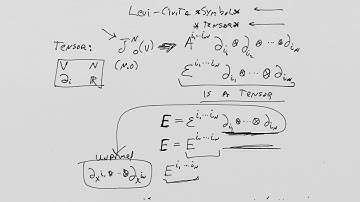 Levi-Civita *Symbol* ←
* TENSOR *
TENSOR: J^N_0(V) ⇒ A^{i_1...i_N} ∂_{i_1} ⊗ ∂_{i_2} ⊗ ... ⊗ ∂_{i_N}
V N
∂_i ℝ
(N,0)
ε^{i_1...i_N} ∂_{i_1} ⊗ ... ⊗ ∂_{i_N}
IS A TENSOR
E = ε^{i_1...i_N} ∂_{i_1} ⊗ ... ⊗ ∂_{i_N}
E = E^{i_1...i_N}
∂_{x^{i_1}} ⊗ ... ⊗ ∂_{x^{i_N}}
E^{i_1...i_N}